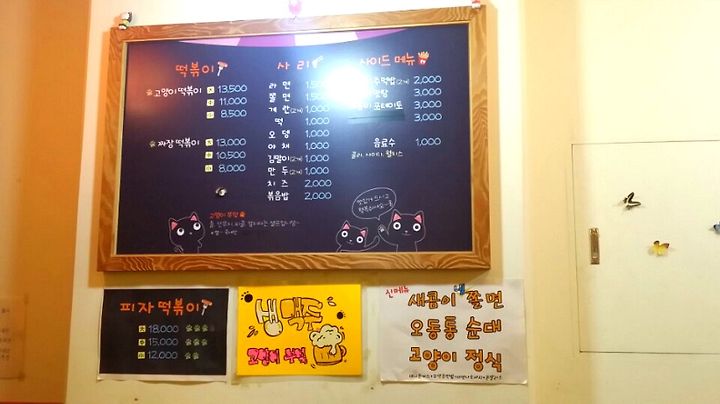 떡볶이
고양이 떡볶이 大 13,500
中 11,000
小 8,500
짜장 떡볶이 大 13,000
中 10,500
小 8,000
고양이 부탁
사리
라면 1,500
쫄면 1,500
계란(2개) 1,000
떡 1,000
오뎅 1,000
야채 1,000
김말이(2개) 1,000
만두(2개) 1,000
치즈 2,000
볶음밥 2,000
사이드 메뉴
2,000
3,000
3,000
3,000
음료수 1,000
콜라, 사이다, 웰치스
피자 떡볶이
大 18,000
中 15,000
小 12,000
생맥주
신메뉴
새콤이 쫄면
오동통 순대
고양이 정식